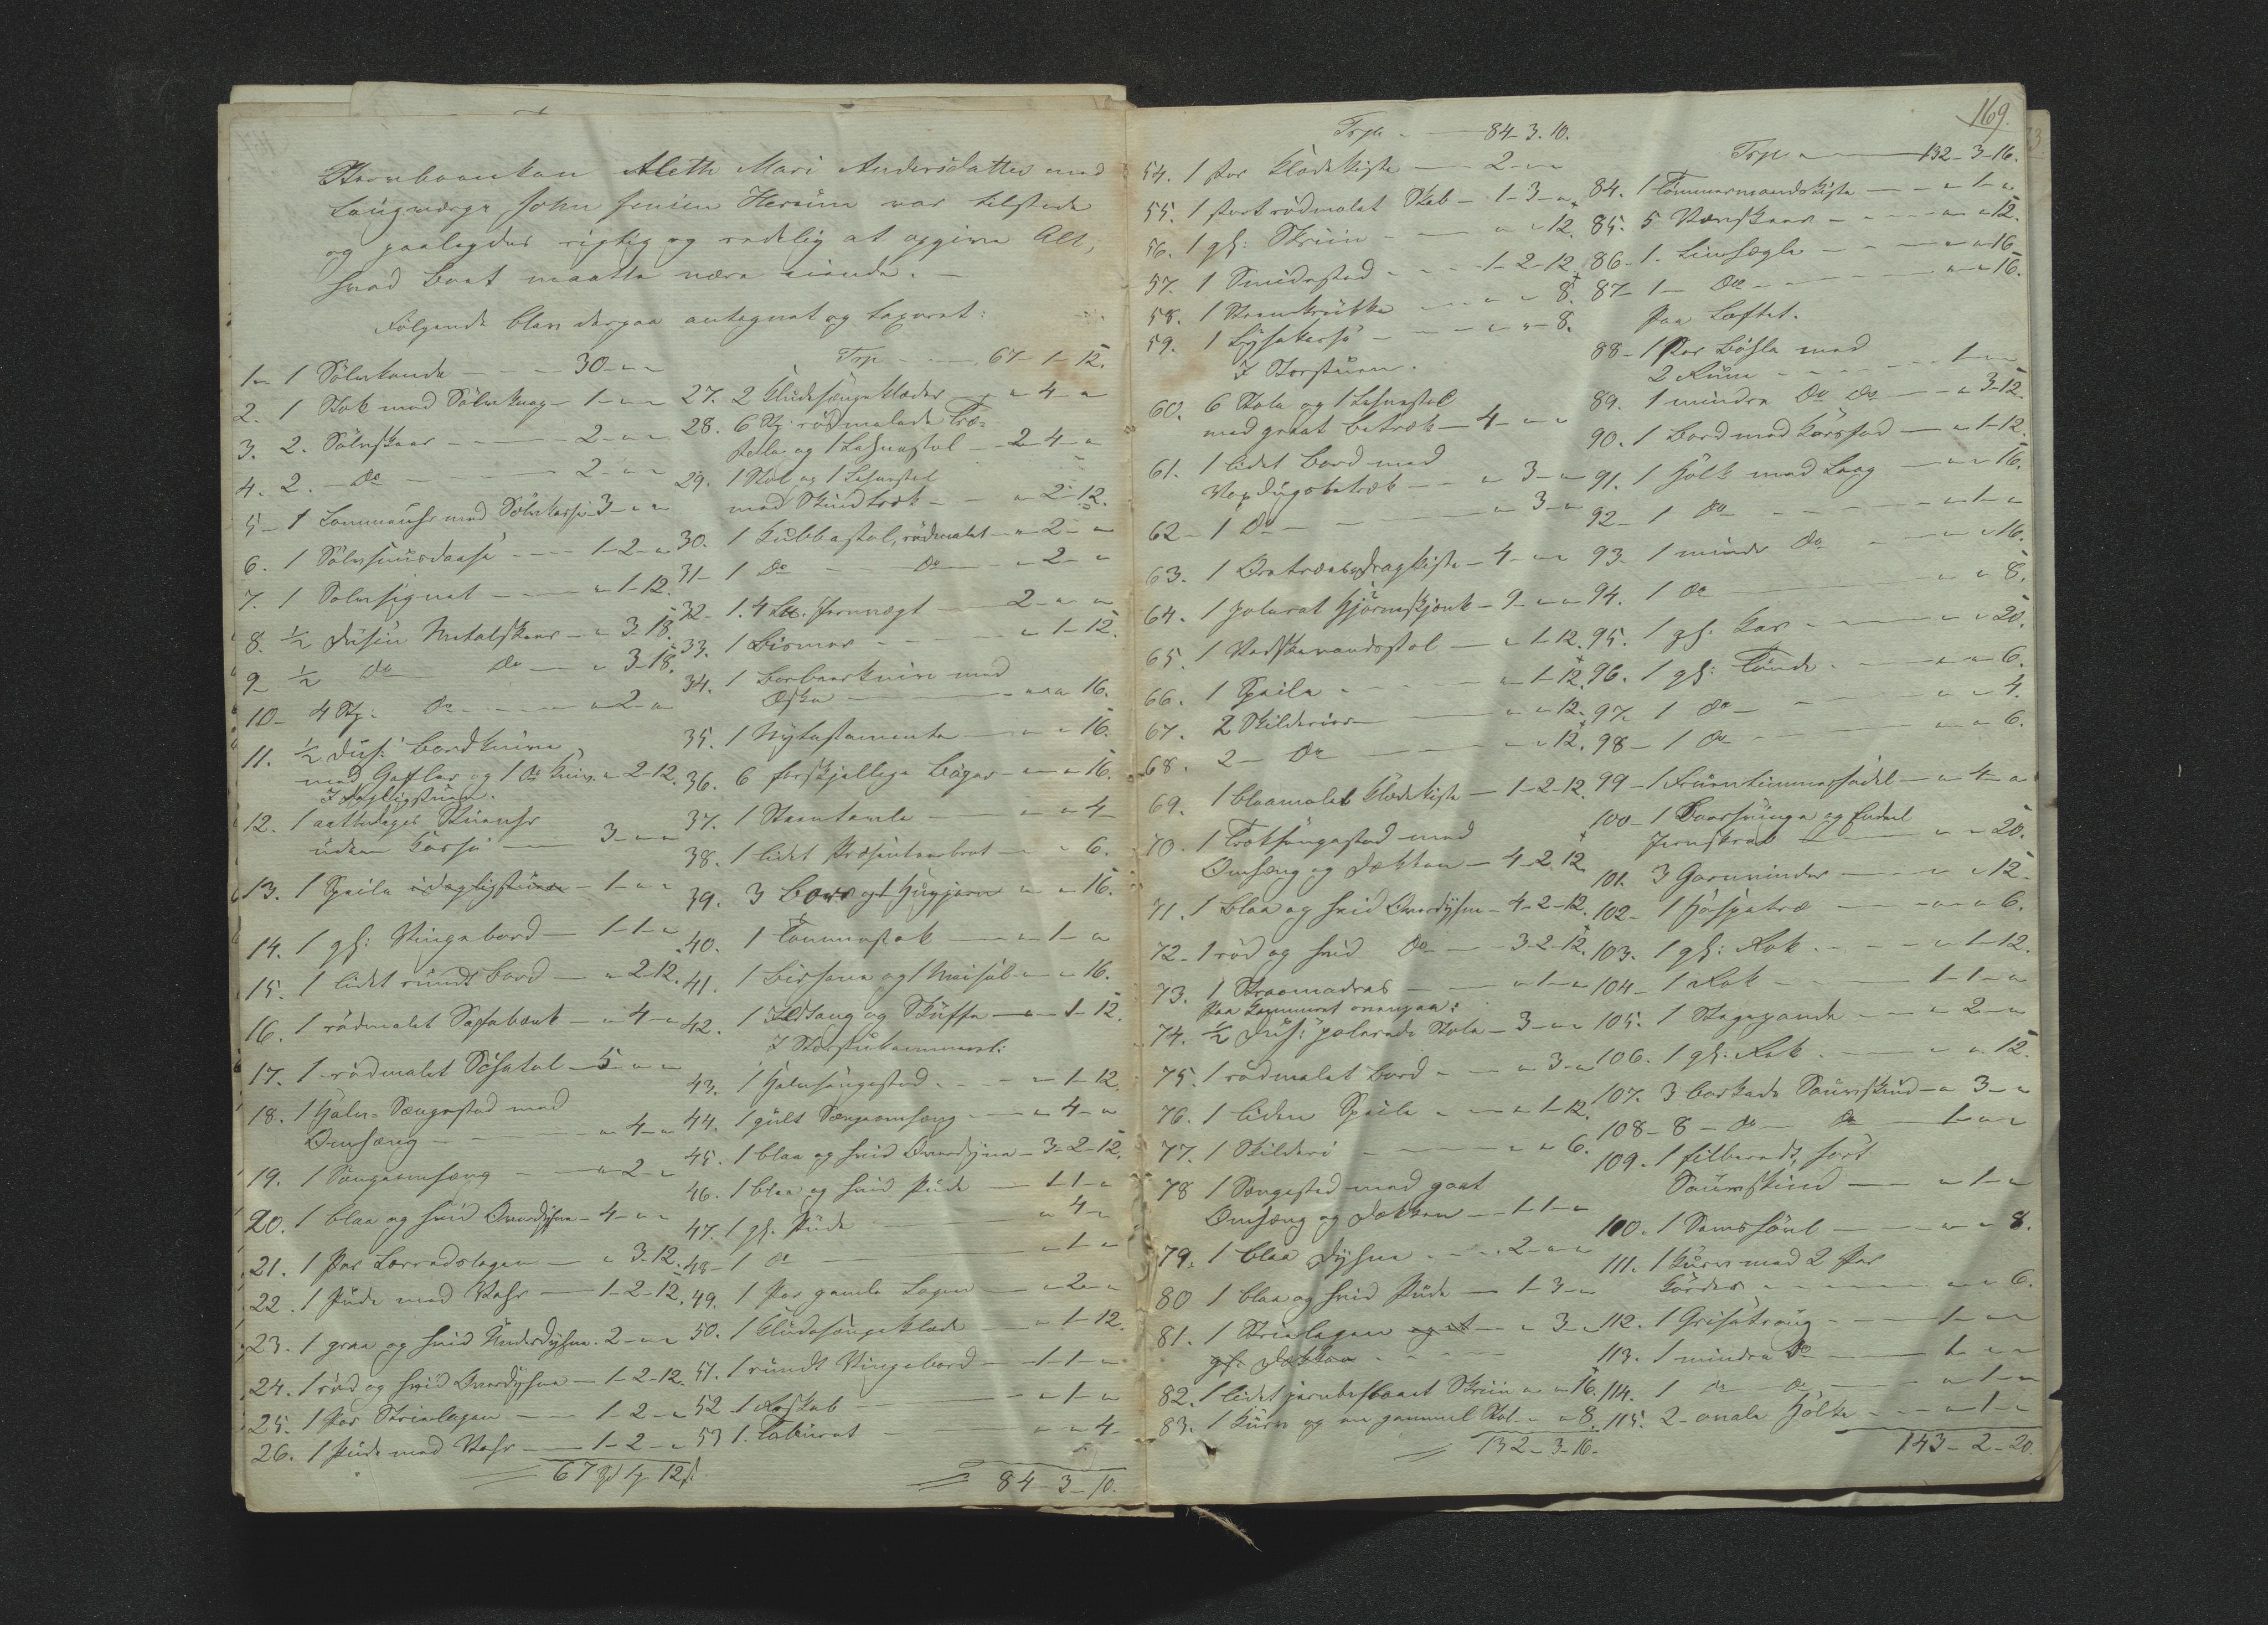 Stervboenken Aleth Mari Andersdatter med
Laugværge John Jensen Hereim var tilstede
og paalagdes rigtig og redelig at opgive Alt,
hvad Boet maatte være eiende. -
Følgende blev derpaa antegnet og taxeret:
1- 1 Sølvkande - 30 - " - "
2. 1 Stok med Sølvknap - 1 - " - "
3. 2. Sølvskeer - 2 - " - "
4. 2. - Do - 2 - " - "
5 - 1 Lommeuhr med Sølvkasse - 3 - " - "
6. 1 Sølvsnuusdaase - 1 - 2 - "
7. 1 Sølvsignet - " - 1 - 12.
8. ½ Dusin Metalskeer - " 3 - 18.
9 - ½ Do Do - " 3 - 18.
10 - 4 Stk. Do - " 2 - "
11. ½ Dus: Bordknive
med Gafler og 1 Do Kniv. " 2 - 12.
I Dagligstuen.
12. 1 aattedages Stueuhr
uden Kasse - 3 - " - "
13. 1 Speile i Dagligstuen - 1 - " - "
14. 1 gl: Klingebord - 1 - 1 - "
15. 1 lidet rundt Bord - " 2 - 12.
16. 1 rødmalet Sofabænk - " 4 - "
17. 1 rødmalet Skatol - 5 - " - "
18. 1 Halv-Sengested med
Omhæng - " 4 - "
19. 1 Sengeomhæng - " 2 - "
20. 1 blaa og hvid Overdyne - 4 - " - "
21. 1 Par Lærredslagen - " 3 - 12.
22. 1 Pude med Vahr - 1 - 2 - 12.
23. 1 graa og hvid Underdyne. 2 - " - "
24. 1 rød og hvid Overdyne - 1 - 2 - 12.
25. 1 Par Strielagen - 1 - 2 - "
26. 1 Pude med Vahr - 1 - 2 - "
67 Spd 1 12 s.
Trsp - 67 - 1 - 12.
27. 2 Kludesengeklæder - " 4 - "
28. 6 Stk. rødmalede Træ-
stole og 1 Lehnestol - 2 - 4 - "
29. 1 Stol og 1 Lehnestol
med Skindtræk - " - 2 - 12.
30. 1 Kubbestol, rødmalet - " 2 - "
31 - 1 Do - Do - " 2 - "
32 - 1. 4 L℔. Jernvægt - 2 - " - "
33. 1 Bismer - " 1 - 12.
34. 1 Barbeerkniv med
Æske - " " 16.
35. 1 Nytestamente - " " 16.
36. 6 forskjellige Bøger - " " 16.
37. 1 Steentavle - " " 4 -
38. 1 lidet Præsenteerbret - " " 6.
39. 3 Bore og 1 Hugjern " " 16.
40. 1 Tommestok - " 1 - "
41. 1 - " " 16.
42. 1 Ildtang og Skuffe - " 1 - 12.
I Storstukammeret:
43. 1 Halvsengested - " 1 - 12.
44. 1 guult Sengeomhæng - " 4 - "
45. 1 blaa og hvid Overdyne - 3 - 2 - 12.
46. 1 blaa og hvid Pude - 1 - 1 - "
47. 1 gl. Pude - " 4 - "
48 - 1 Do - " 1 - "
49. 1 Par gamle Lagen - " 2 - "
50. 1 Kludesengeklæde - " 1 - 12.
51. 1 rundt Klingebord - 1 - 1 - "
52 1 Skab - " 1 - "
53 1. Taburet - " " 4 -
84 - 3 - 10.
169.
Trsp. - 84 - 3. 10.
54. 1 stor Klædekiste - 2 - " - "
55. 1 stort rødmalet Skab - 1 - 3 - "
56. 1 gl: Skriin - " " 12.
57. 1 Smidested - 1 - 2 - 12
58. 1 Steenkrukke - " " 8.
59. 1 Lysekasse - " " 8.
I Storstuen.
60. 6 Stole og 1 Lehnestol
med graat Betræk - 4 - " - "
61. 1 lidet Bord med
Voxdugsbetræk - " 3 - "
62 - 1 Do - " 3 - "
63. 1 Dragkiste - 4 - " - "
64. 1 poleret Hjørneskjænk - 9 - " - "
65. 1 Vadskevandsstol - " 1 - 12.
66. 1 Speile - " 1 - 12
67. 2 Skilderier - " " 12.
68. 2 - Do - " " 12.
69. 1 blaamalet Klædekiste - 1 - 2 - 12.
70. 1 Trætsengested med
Omhæng og Dækken - 4 - 2 12
71. 1 blaa og hvid Overdyne - 4 - 2 - 12.
72 - 1 rød og hvid Do - 3 - 2 - 12.
73. 1 Straamadras - " 1 - "
Paa Kammeret ovenpaa:
74. ½ Dus: polerede Stole - 3 - " - "
75. 1 rødmalet Bord - " 3 - "
76. 1 liden Speile - " 1 - 12.
77. 1 Skilderi - " " 6.
78 1 Sengested med gaat
Omhæng og Dækken - 1 - 1 - "
79. 1 blaa Dyne - 2 - " - "
80 1 blaa og hvid Pude - 1 - 3 - "
81. 1 Strielagen og et - " 3 - "
gl. Dækken
82. 1 lidet jernbeslaaet Skriin " " 16.
83. 1 Kurv og en gammel Stol - " 8.
132 - 3 - 16.
Trsp - 132 - 3 - 16.
84. 1 Tømmermandskiste - " 1 - "
85. 5 - " " 12.
86 - 1. Linhegle - " " 16
87 - 1 - Do - " " 16.
Paa Loftet.
88 - 1 stor Bøhle med
2 Rum - 1 - " - "
89. 1 mindre Do Do - " 3 - 12.
90. 1 Bord med - " 1 - 12
91. 1 Holk med Laag - " " 16.
92 - 1 Do - " 1 - "
93. 1 mindre Do - " " 16.
94. 1 Do - " " 8.
95. 1 gl. Kar - " " 20.
96. 1 gl: Tønde - " " 6.
97. 1 Do - " " 4.
98 - 1 Do - " " 6.
99 - 1 Fruentimmersadel - " 4 - "
100 - 1 og Endeel
Jernskrab - " " 20.
101. 3 Garnvinder - " " 12 -
102 - 1 Haspetræ - " " 6.
103. 1 gl: Rok - " 1 - 12.
104 - 1 Rok - 1 - 1 - "
105. 1 Stegepande - " 2 - "
106. 1 gl: Rok - " " 12.
107. 3 barkede Saueskind - " 3 - "
108 - 8 - Do - Do - 1 - " - "
109. 1 filberedt, sort
Saueskind - " 1 - "
110. 1 - " " 8.
111. 1 Kurv med 2 Par
Karder - " " 6.
112. 1 Grisetraug - 1 - " - "
113. 1 mindre Do - 1 - " - "
114. 1 Do Do - " 1 - "
115. 2 - ovale Holke - " 1 - "
143 - 2 - 20.